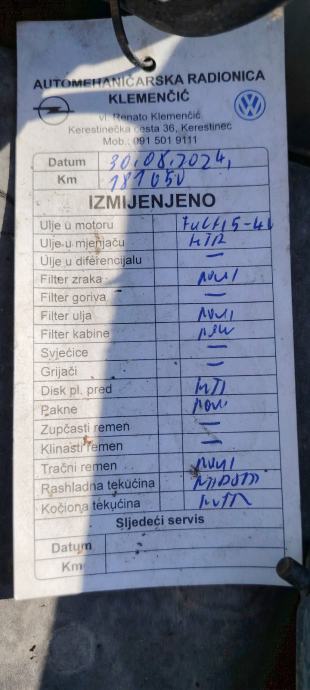 AUTOMEHANIČARSKA RADIONICA
KLEMENČIĆ
vl. Renato Klemenčić
Kerestinečka cesta 36, Kerestinec
Mob.: 091 501 9111
Datum 30.08.2024,
Km 181050
IZMIJENJENO
Ulje u motoru
Ulje u mjenjaču
Ulje u diferencijalu —
Filter zraka novi
Filter goriva —
Filter ulja novi
Filter kabine
Svjećice —
Grijači —
Disk pl. pred
Pakne novi
Zupčasti remen —
Klinasti remen —
Tračni remen novi
Rashladna tekućina
Kočiona tekućina
Sljedeći servis
Datum
Km